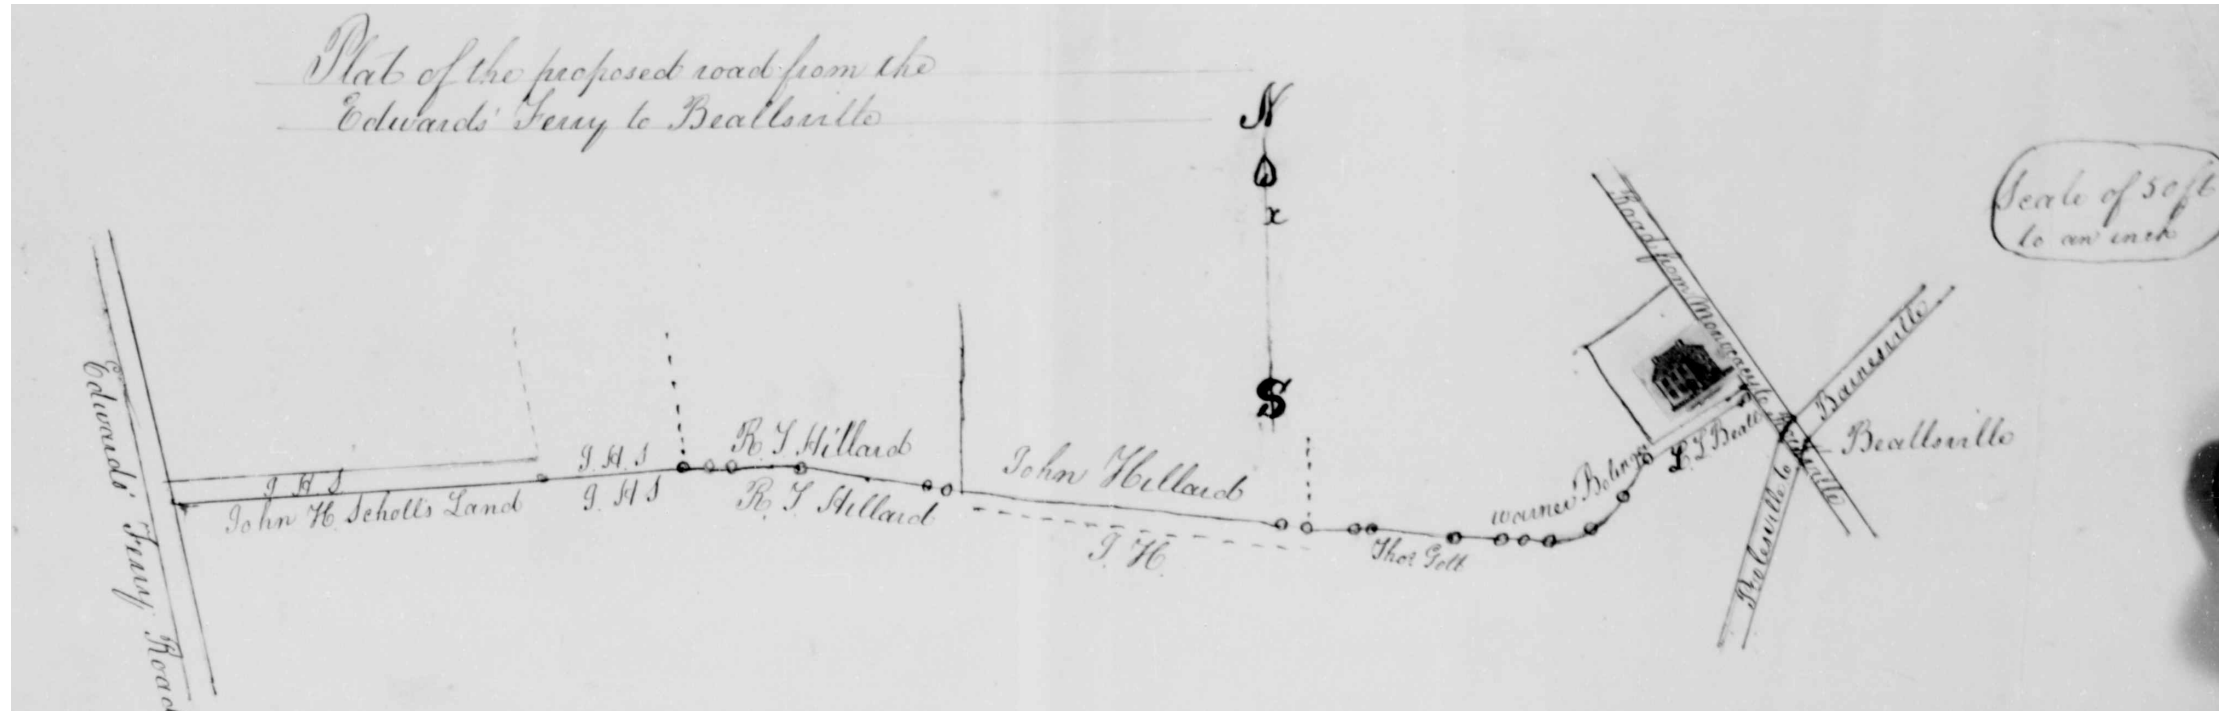 Plat of the proposed road from the
Edwards' Ferry to Beallsville
N
x
S
Scale of 50 ft
to an inch
Edwards' Ferry Road
J. H. S
John H. Scholl's Land
J. H. S
J. H. S
R. T. Hillard
R. T. Hillard
John Hillard
J. H.
Thos Gott
Warner
L. L. Beall
Road from Monocacy to Rockville
Barnesville
Beallsville
Poolesville to